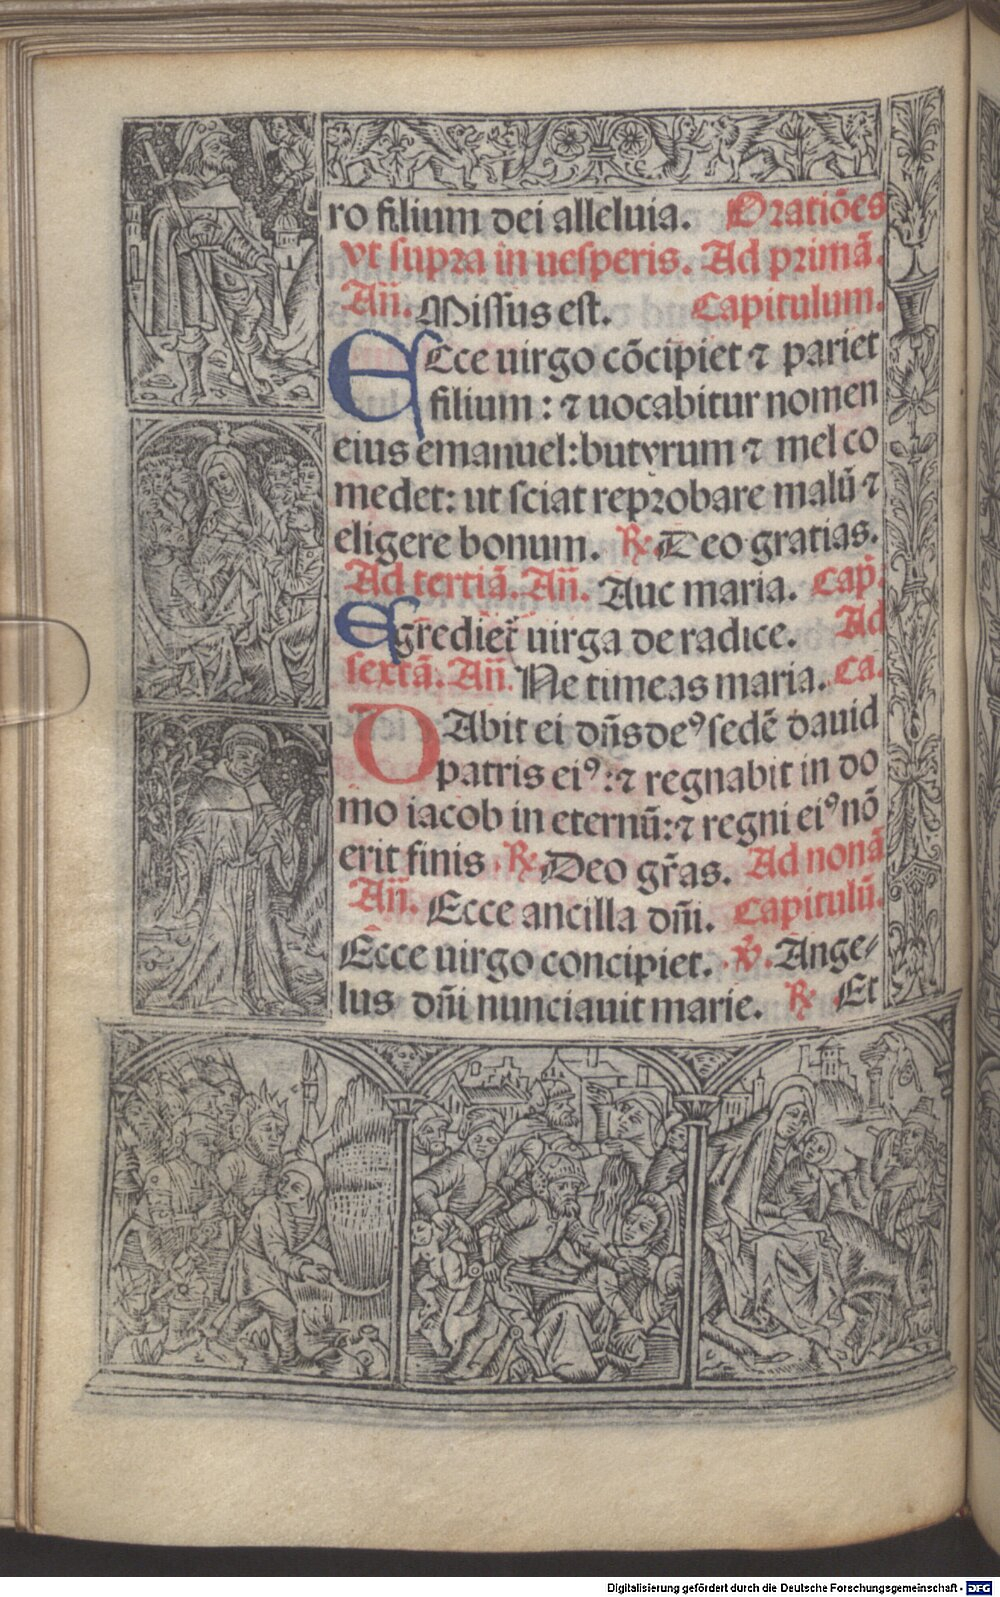 ro filium dei alleluia. Oratiões
vt supra in uesperis. Ad primã.
Añ. Missus est. Capitulum.
Ecce uirgo cõcipiet ⁊ pariet
filium : ⁊ uocabitur nomen
eius emanuel: butyrum ⁊ mel co
medet: ut sciat reprobare malũ ⁊
eligere bonum. ℞ Deo gratias.
Ad tertiã. Añ. Aue maria. Cap̃.
Egrediet̃ uirga de radice. Ad
sextã. Añ. Ne timeas maria. Ca.
DAbit ei dñs deꝰ sedẽ dauid
patris eiꝰ: ⁊ regnabit in do
mo iacob in eternũ: ⁊ regni eiꝰ nõ
erit finis. ℞ Deo gr̃as. Ad nonã
Añ. Ecce ancilla dñi. Capitulũ.
Ecce uirgo concipiet. ℣. Ange⸗
lus dñi nunciauit marie. ℞ Et
Digitalisierung gefördert durch die Deutsche Forschungsgemeinschaft - DFG